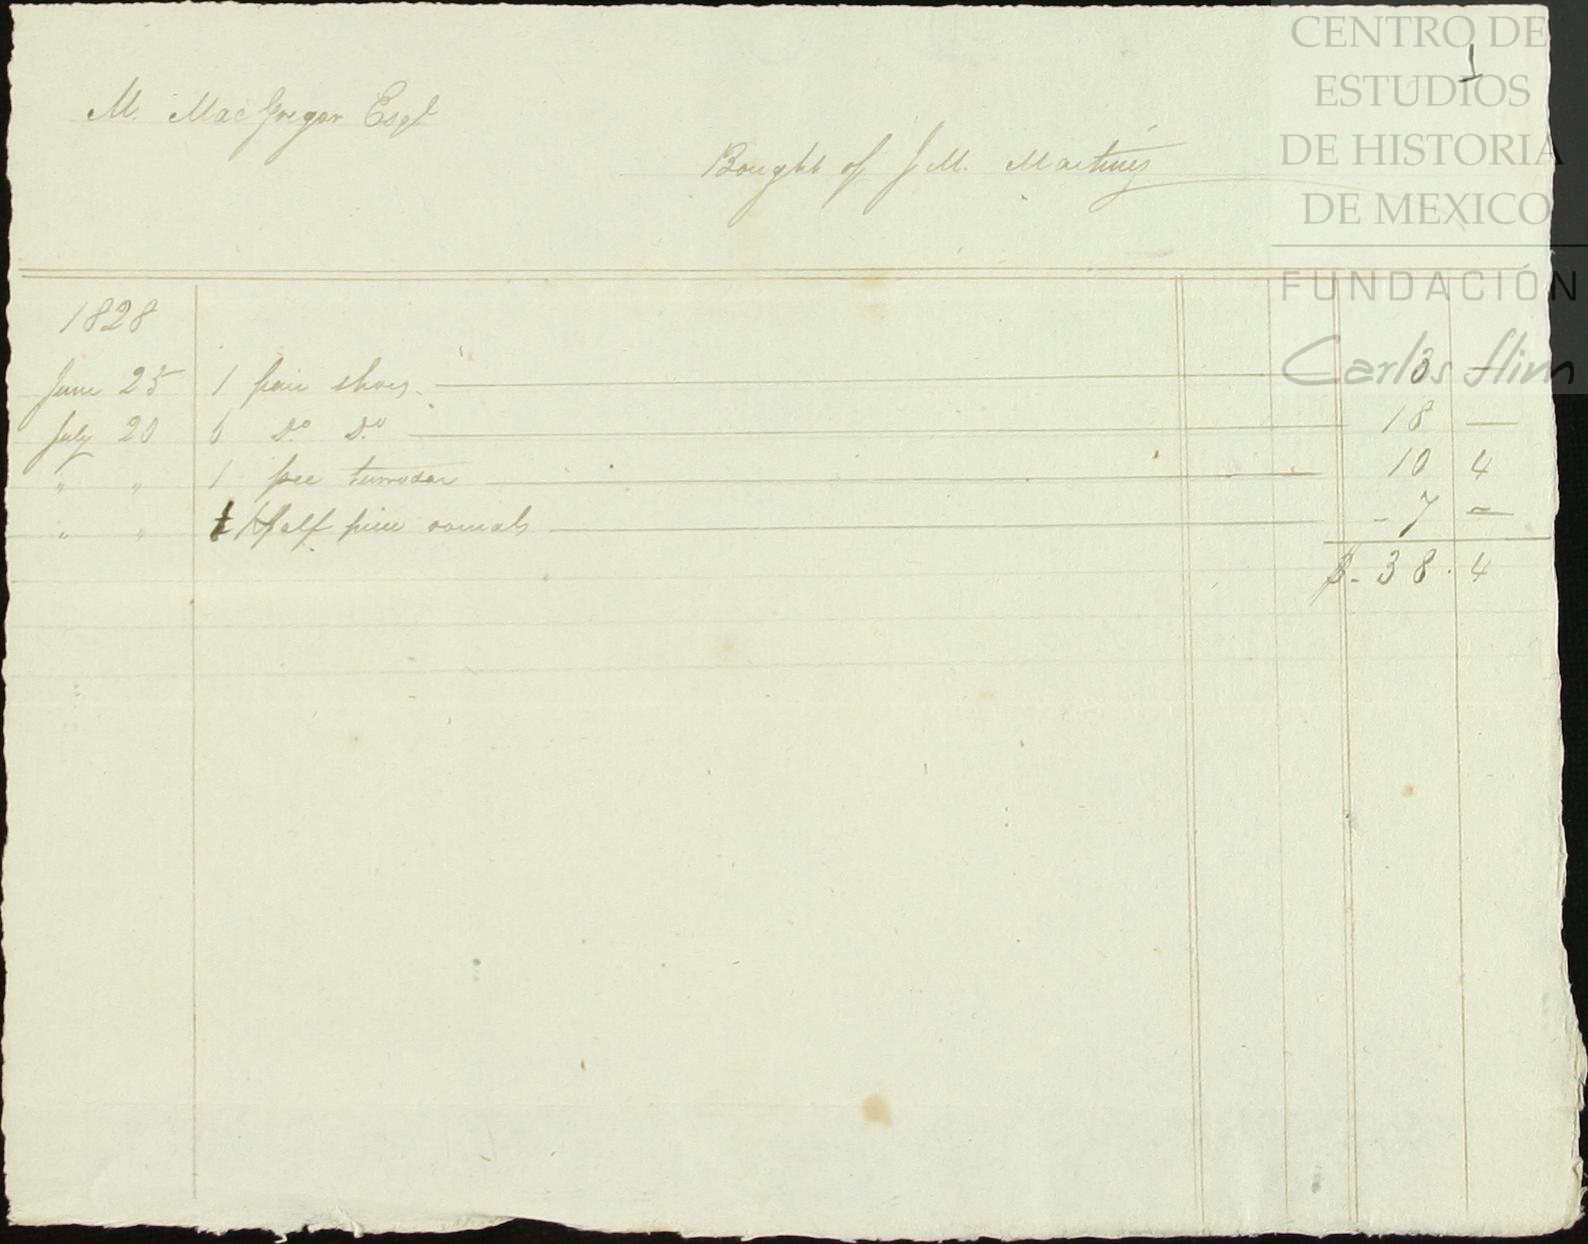 CENTRO DE
ESTUDIOS
DE HISTORIA
DE MEXICO
FUNDACIÓN
Carlos Slim
1
M. MacGregor Esqr
Bought of J M. Martinez
1828
June 25 1 pair shoes. 3 —
July 20 6 Do Do 18 —
" " 1 pce 10 4
" " Half piece romals - 7 —
$ - 38 . 4